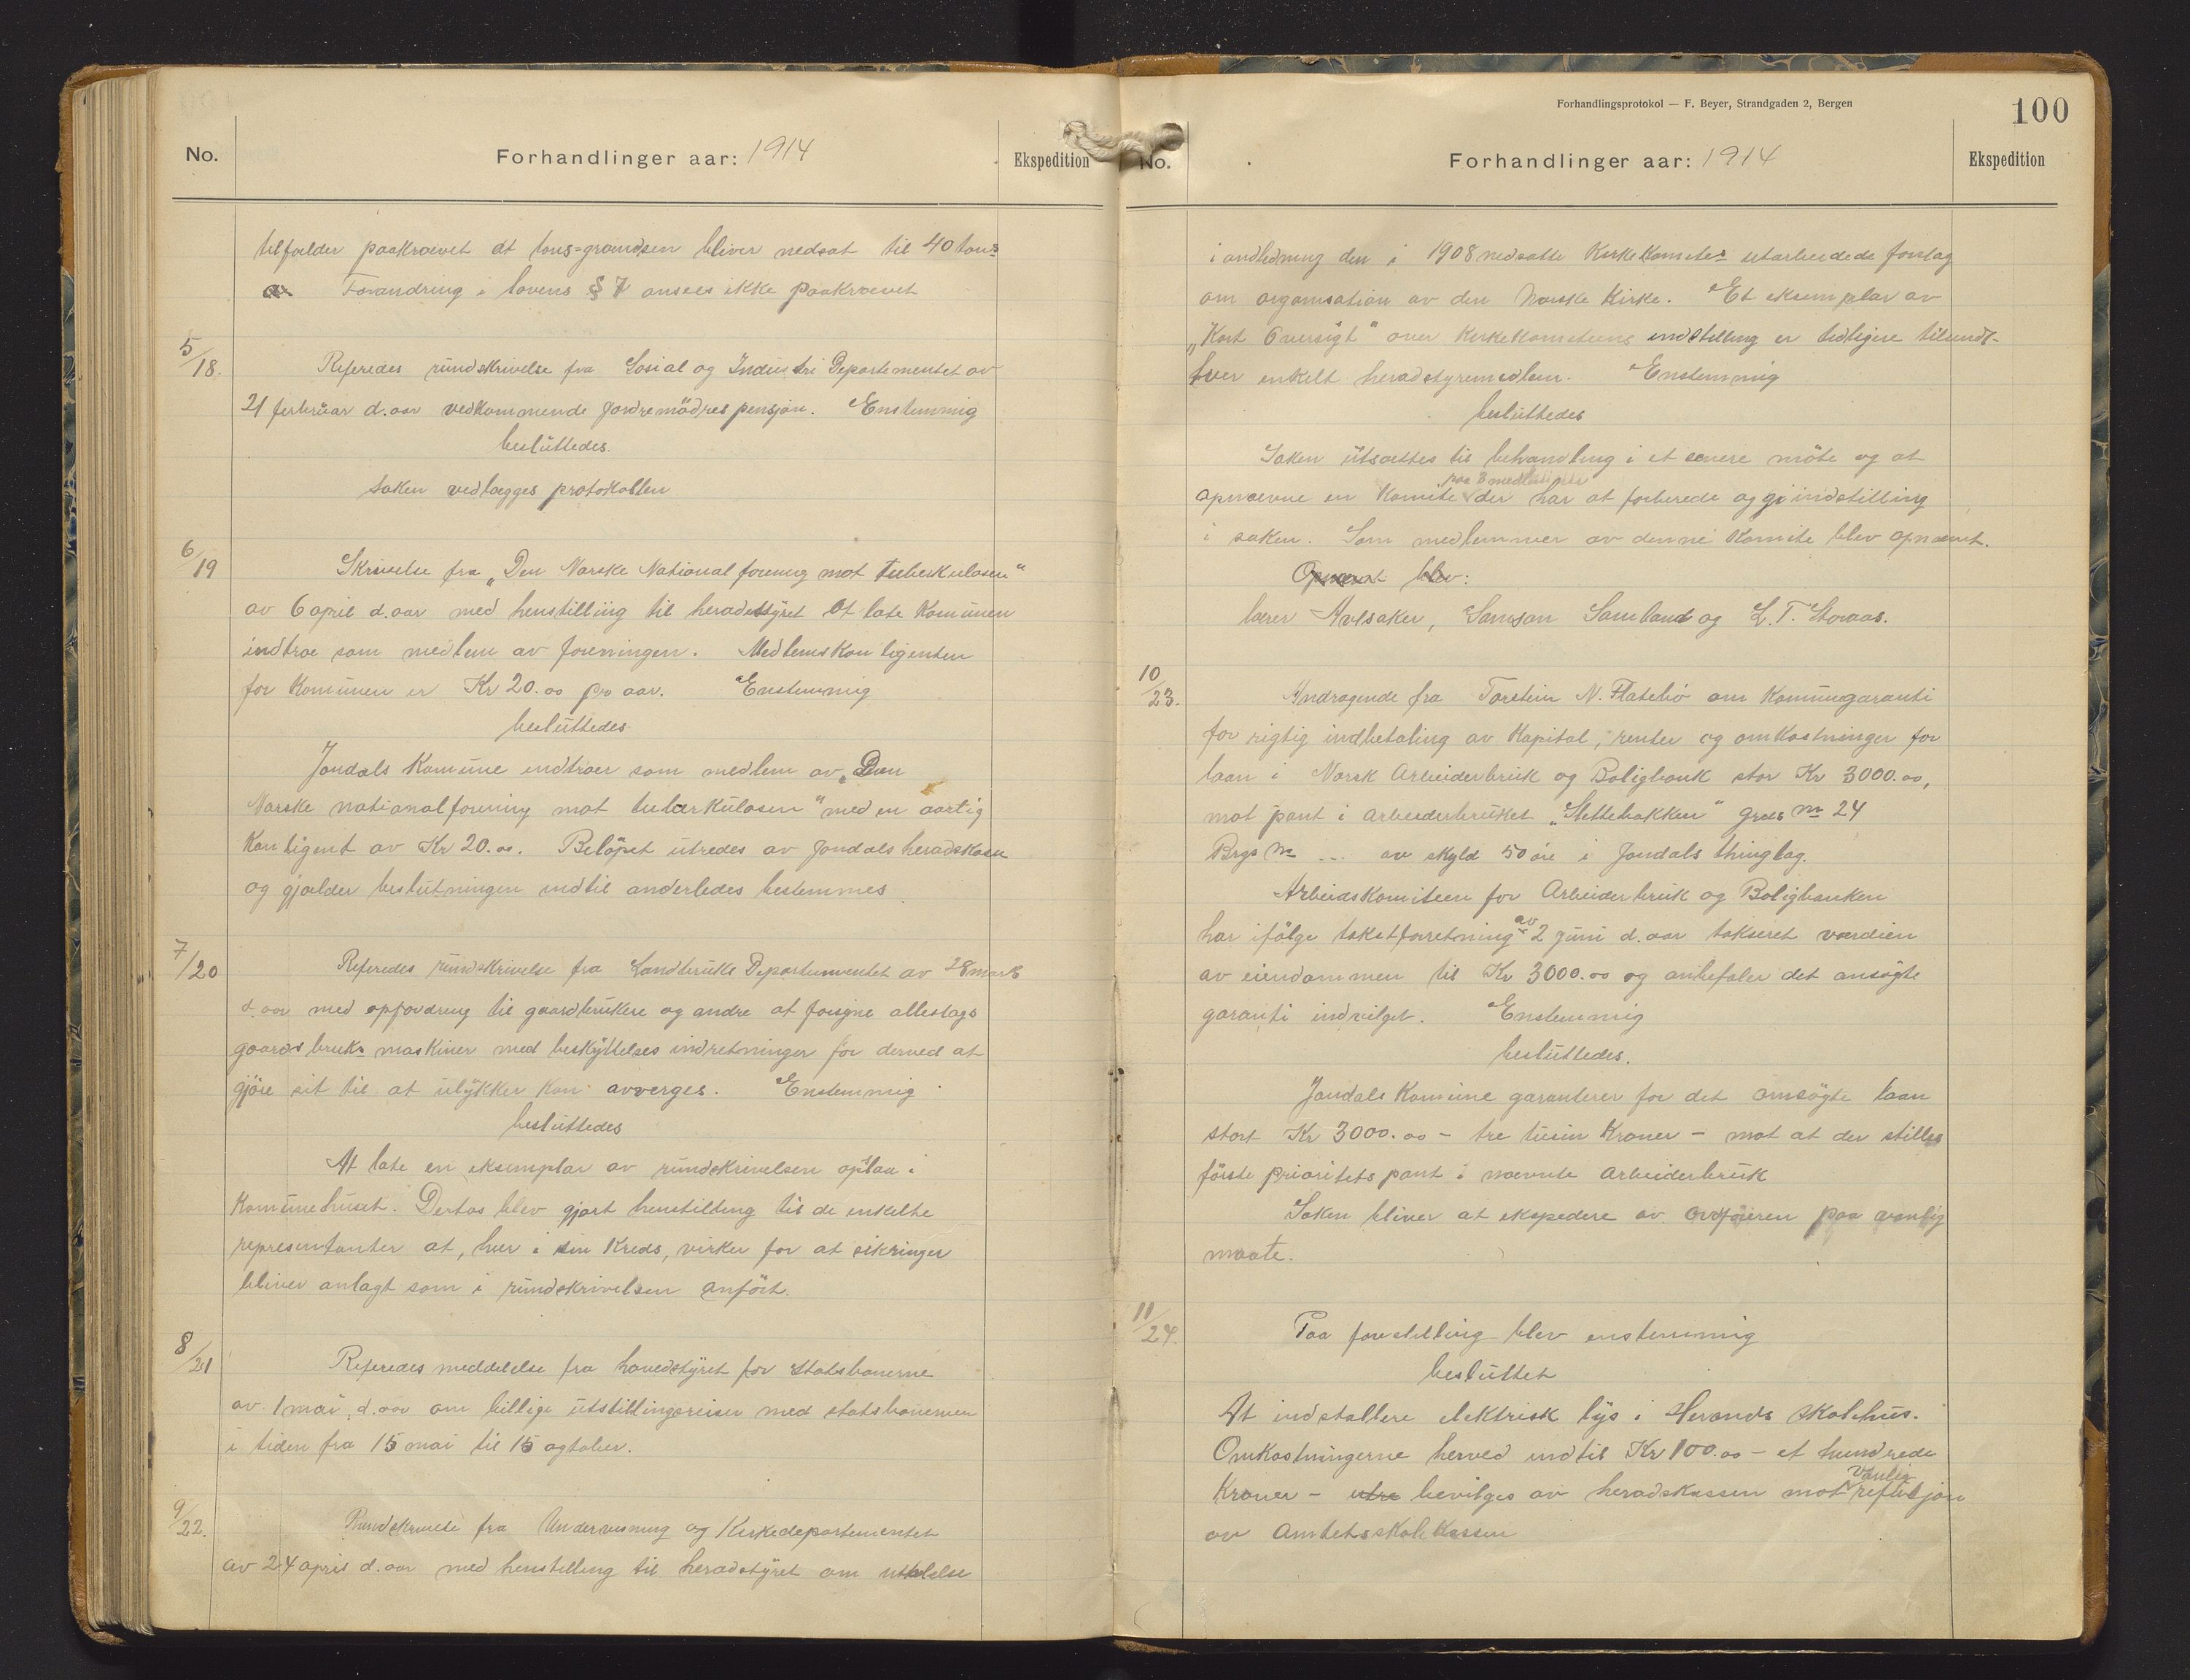 No.
Forhandlinger aar: 1914
Ekspedition
tilfælder paakrævet at tons-grændsen bliver nedsat til 40 tons
Forandring i lovens § 7 ansees ikke paakrævet
5/18.
Referedes rundskrivelse fra Sosial og Industri Departementet av
21 februar d. aar vedkommende Jordemödres pensjon. Enstemmig
besluttedes.
Saken vedlægges protokollen
6/19
Skrivelse fra „Den Norske National forening mot tuberkulosen"
av 6 april d. aar med henstilling til heradstyret at late Komunen
indtræ som medlem av foreningen. Medlemskontigenten
for Komunen er Kr 20.00 pro aar. Enstemmig
besluttedes
Jondals Komune indtræer som medlem av „Den
Norske nationalforening mot tuberkulosen" med en aarlig
Kontigent av Kr 20.00. Belöpet utredes av Jondals heradskasse
og gjælder beslutningen indtil anderledes bestemmes
7/20
Referedes rundskrivelse fra Landbruks Departementet av 28 marts
d. aar med opfordring til gaardbrukere og andre at forsyne alleslags
gaardsbruks maskiner med beskyttelses indretninger for derved at
gjöre sit til at ulykker kan avverges. Enstemmig
besluttedes
At late en eksemplar av rundskrivelsen opslaa i
Komunehuset. Dertas blev gjort henstilling til de enkelte
representanter at, hver i sin Kreds, virker for at sikringer
bliver anlagt som i rundskrivelsen anfört.
8/21
Referedes meddelelse fra hovedstyret for Statsbanerne
av 1 mai d. aar om billige utstillingsreiser med statsbanerne
i tiden fra 15 mai til 15 oqtober.
9/22.
Rundskrivelse fra Undervisning og Kirkedepartementet
av 24 april d. aar med henstilling til heradstyret om uttalelse
Forhandlingsprotokol — F. Beyer, Strandgaden 2, Bergen
100
No.
Forhandlinger aar: 1914
Ekspedition
i andledning den i 1908 nedsatte Kirkekomites utarbeidede forslag
om organisation av den Norske Kirke. Et eksemplar av
„Kort Oversigt" over Kirkekomiteens indstilling er tidligere tilsendt
hver enkelt heradstyremedlem. Enstemmig
besluttedes
Saken utsættes til behandling i et senere möte og at
paa 3 medlemmer
opnævne en Komite der har at forberede og gi indstilling
i saken. Som medlemmer av denne Komite blev opnævnt.
Opnævnt blev:
lærer Avlsaker, Samson Samland og L. T. Storaas.
10/23.
Andragende fra Torstein N. Flatebö om Komunegaranti
for rigtig indbetaling av Kapital, renter og omkostninger for
laan i Norsk Arbeiderbruk og Boligbank stor Kr 3000.00,
mot pant i arbeiderbruket „Slettebakken" Grds No 24
Brgs No ... av skyld 50 öre i Jondals thinglag.
Arbeidskomiteen for Arbeiderbruk og Boligbanken
har ifölge takstforretning av 2 juni d. aar takseret værdien
av eiendommen til Kr 3000.00 og anbefaler det ansögte
garanti indvilget. Enstemmig
besluttedes.
Jondals Komune garanterer for det omsögte laan
stort Kr 3000.00 - tre tusin Kroner - mot at der stilles
förste prioritets pant i nævnte arbeiderbruk
Saken bliver at ekspedere av ordföreren paa vanlig
maate.
11/24.
Paa forestilling blev enstemmig
besluttet
At indstallere elektrisk lys i Herands skolehus.
Omkostningerne herved indtil Kr 100.00 - et hundrede
Kroner - utre bevilges av heradskassen mot vanlig refusjon
av Amtetsskolekassen